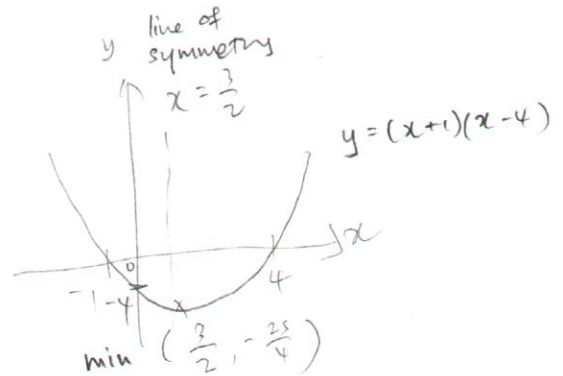 line of
symmetry
y
x = 3/2
y = (x+1)(x-4)
x
0
-1
-4
4
min (3/2, -25/4)